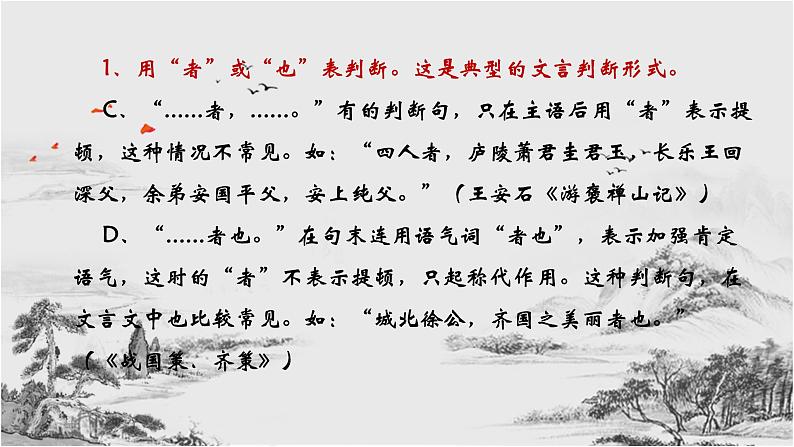 1、用“者”或“也”表判断。这是典型的文言判断形式。
C、“……者，……。”有的判断句，只在主语后用“者”表示提
顿，这种情况不常见。如：“四人者，庐陵萧君圭君玉，长乐王回
深父，余弟安国平父，安上纯父。”（王安石《游褒禅山记》）
D、“……者也。”在句末连用语气词“者也”，表示加强肯定
语气，这时的“者”不表示提顿，只起称代作用。这种判断句，在
文言文中也比较常见。如：“城北徐公，齐国之美丽者也。”
（《战国策．齐策》）